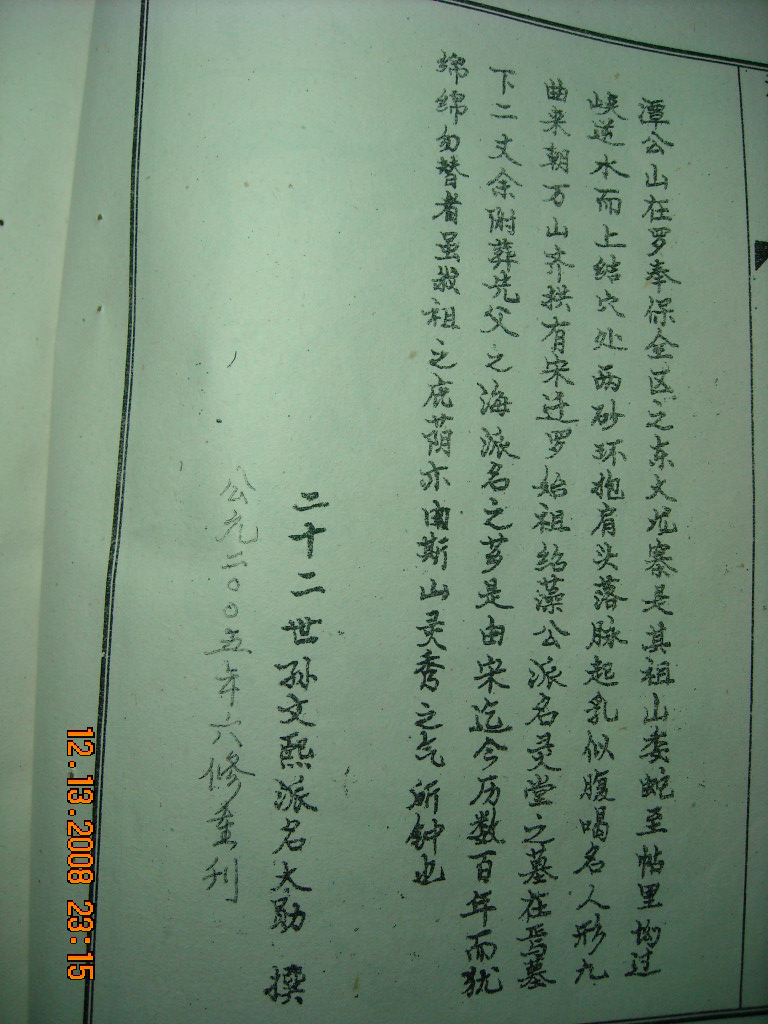 潭公山在罗奉保全区之东文尤寨是其祖山委蛇至帖里坳过
峡逆水而上结穴处两砂环抱肩头落脉起乳似腹喝名人形九
曲来朝万山齐拱有宋迁罗始祖绍藻公派名灵堂之墓在焉墓
下二丈余附葬先父之海派名之芗是由宋迄今历数百年而犹
绵绵勿替者虽我祖之庇荫亦由斯山灵秀之气所钟也
二十二世孙文熙派名大勋 撰
公元二〇〇五年六修重刊
12.13.2008 23:15